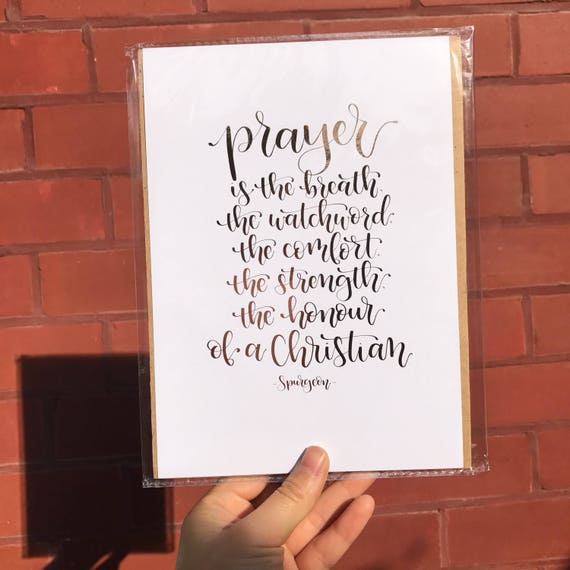 prayer
is the breath.
the watchword.
the comfort.
the strength.
the honour
of a Christian
-Spurgeon-